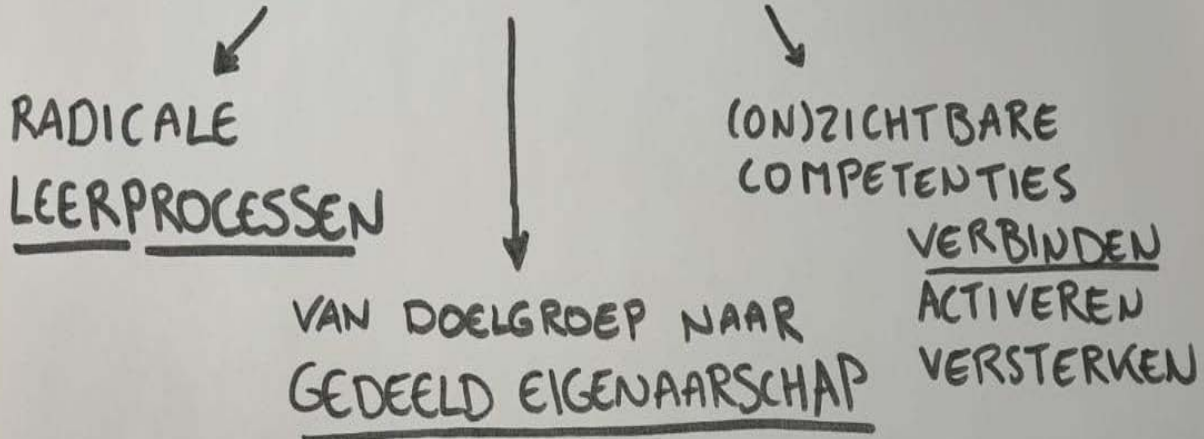 RADICALE
LEERPROCESSEN
VAN DOELGROEP NAAR
GEDEELD EIGENAARSCHAP
(ON)ZICHTBARE
COMPETENTIES
VERBINDEN
ACTIVEREN
VERSTERKEN